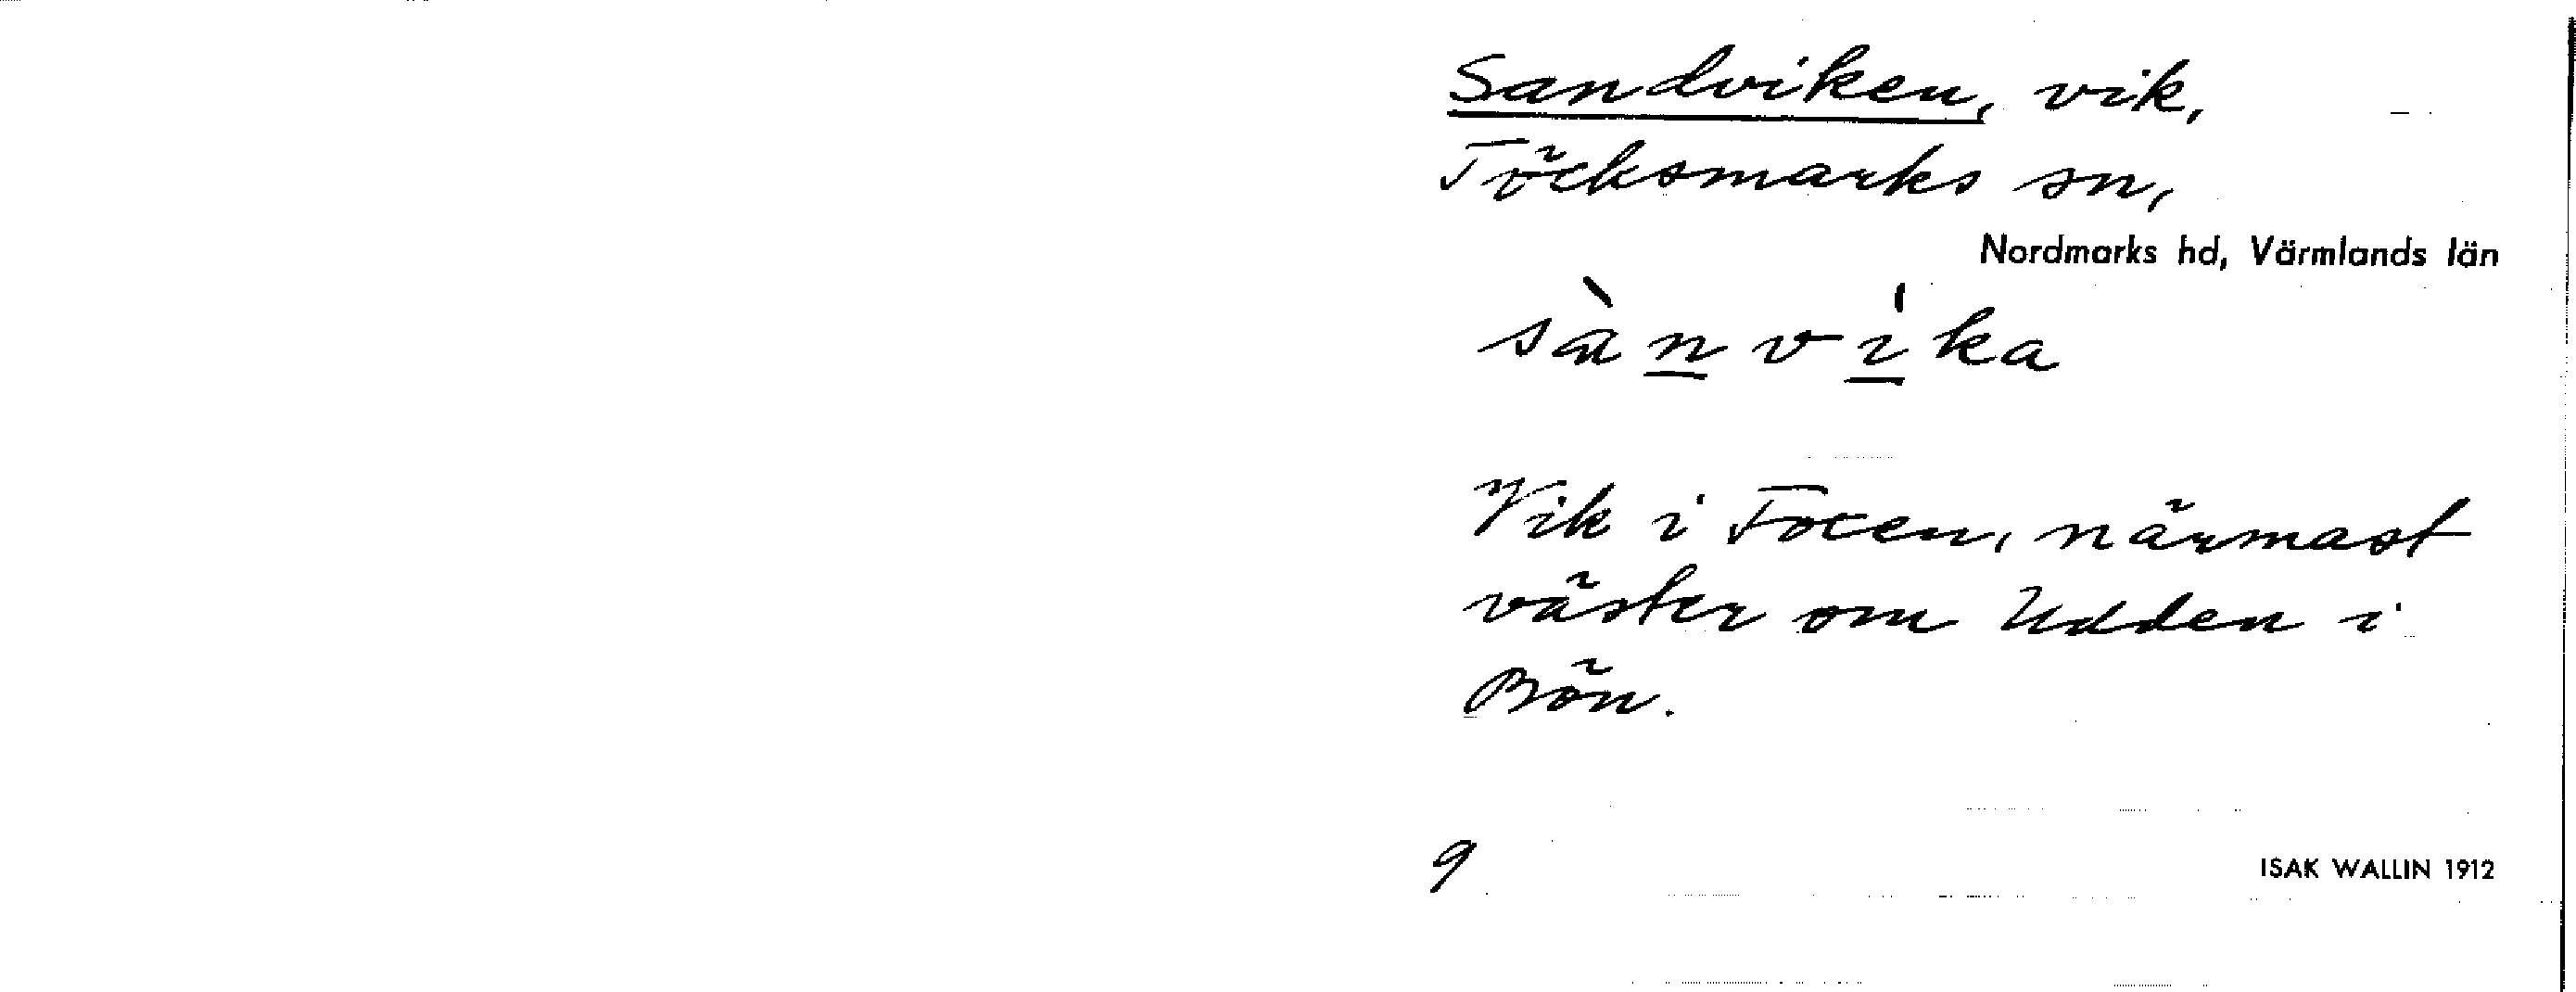 Sandviken, vik,
Töcksmarks sn,
Nordmarks hd, Värmlands län
sànvika
Vik i Foxen, närmast
väster om Udden i
Bön.
9
ISAK WALLIN 1912